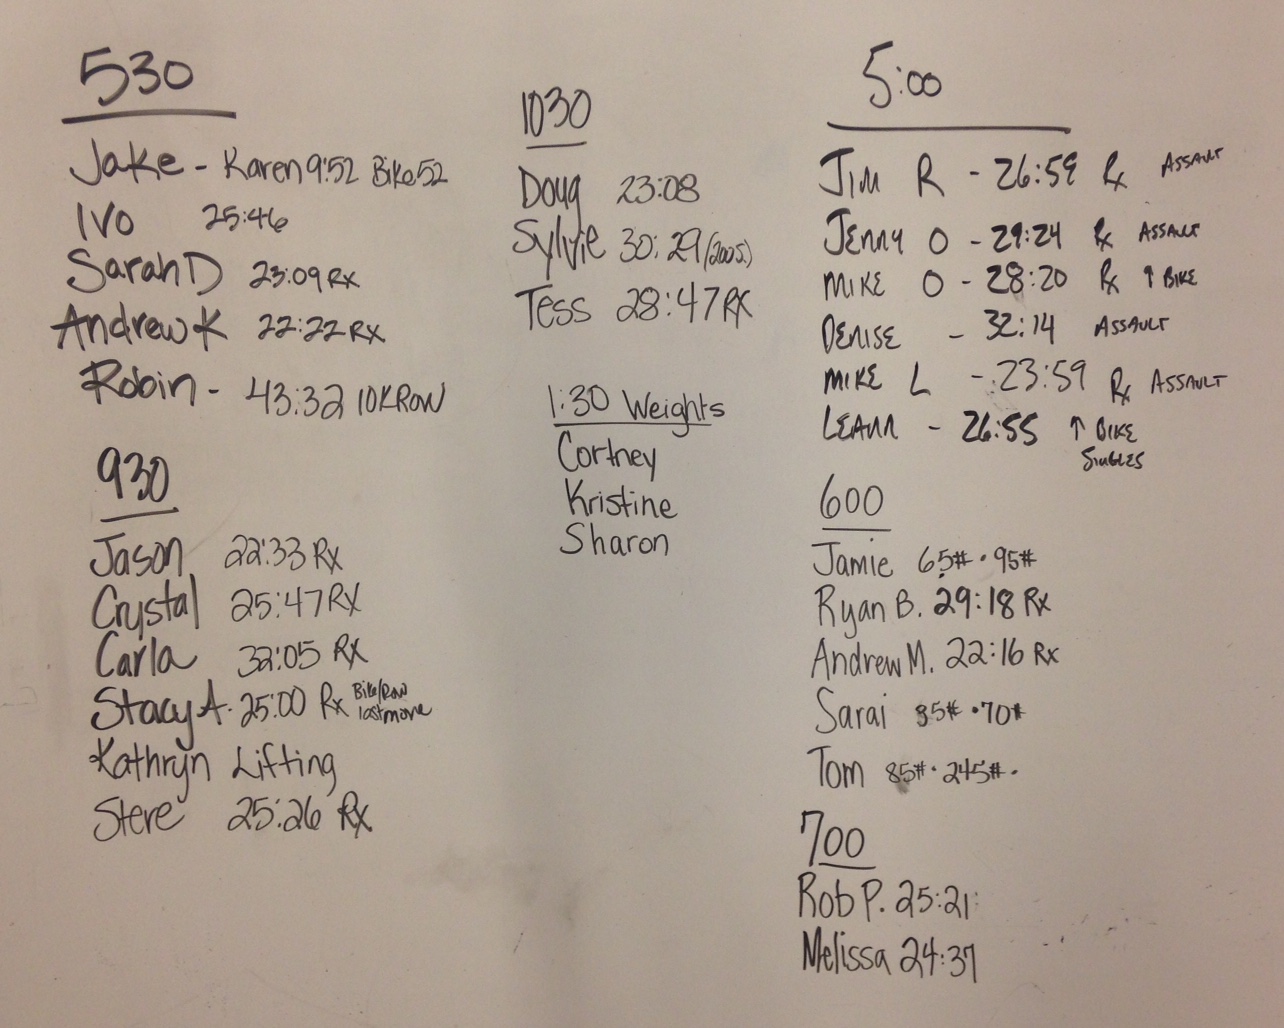 530
Jake - Karen 9:52 Bike 52
Ivo 25:46
Sarah D 23:09 Rx
Andrew K 22:22 Rx
Robin - 43:32 10K Row
930
Jason 22:33 Rx
Crystal 25:47 Rx
Carla 32:05 Rx
Stacy A. 25:00 Rx Bike/Row
last move
Kathryn Lifting
Steve 25:26 Rx
1030
Doug 23:08
Sylvie 30:29
Tess 28:47 Rx
1:30 Weights
Cortney
Kristine
Sharon
5:00
JIM R - 26:59 Rx ASSAULT
JENNY O - 29:24 Rx ASSAULT
MIKE O - 28:20 Rx ↑ BIKE
DENISE - 32:14 ASSAULT
MIKE L - 23:59 Rx ASSAULT
LEANN - 26:55 ↑ BIKE
SINGLES
600
Jamie 65# · 95#
Ryan B. 29:18 Rx
Andrew M. 22:16 Rx
Sarai 35# · 70#
Tom 85# · 245# ·
700
Rob P. 25:21
Melissa 24:37